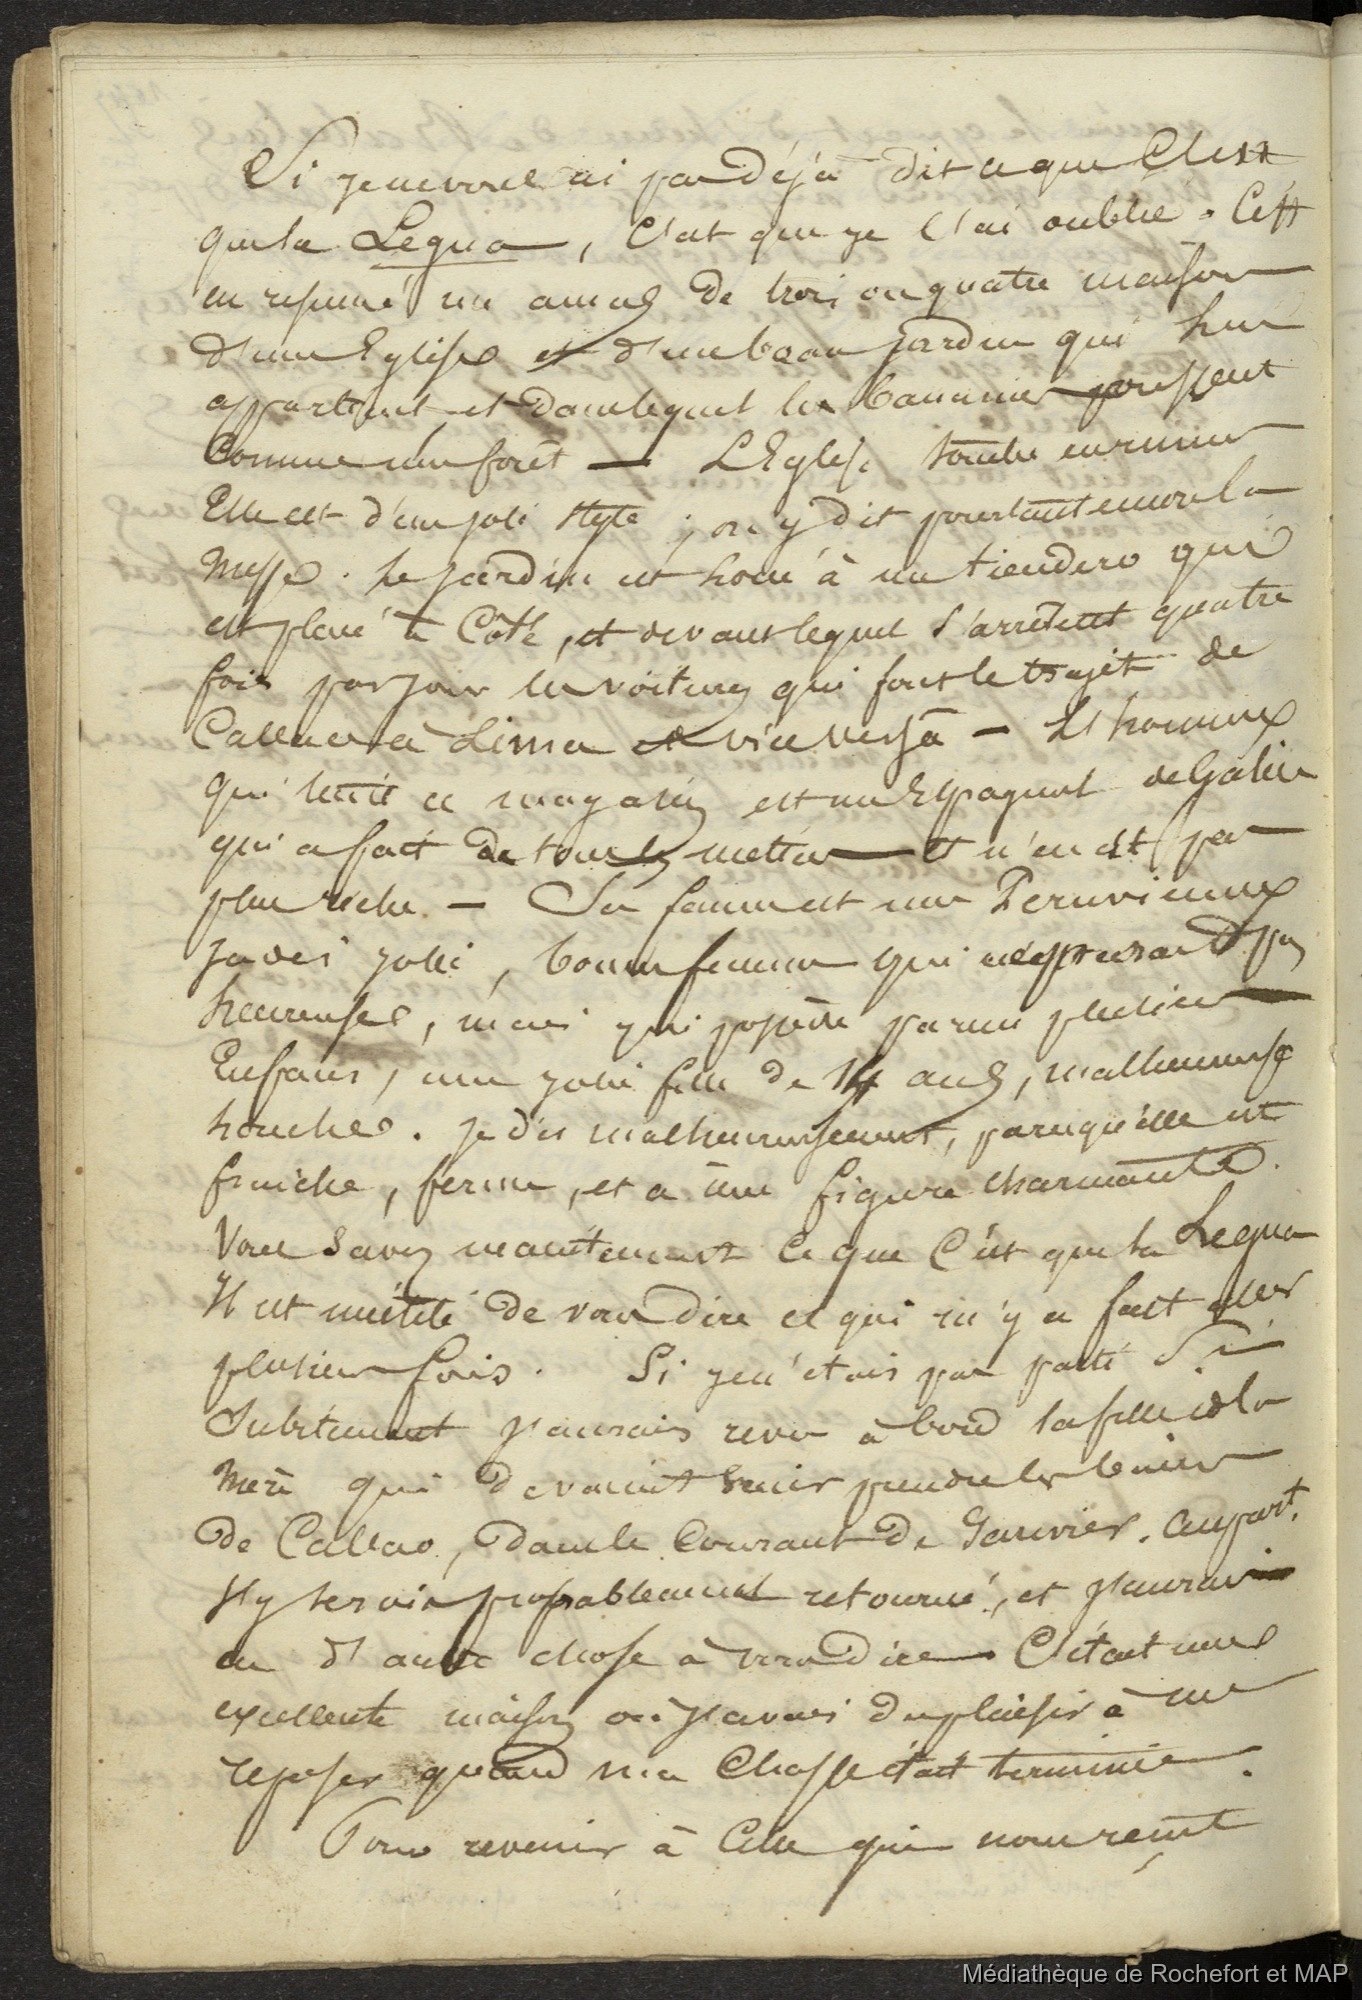 Si je ne vous ai pas déjà dit ce que C'est
que la Legua, C'est que je l'ai oublié. C'est
en resumé un amas de trois ou quatre maisons
d'une Eglise et d'un beau jardin qui lui
appartient et dans lequel les bananiers poussent
Comme une forêt — L'Eglise tombe en ruines
Elle est d'un joli style ; on y dit pourtant encore la
Messe. Le jardin est loué à un tiendero qui
est placé à Côté, et devant lequel s'arrêtent quatre
fois par jour les voitures qui font le trajet de
Callao à Lima et vice versâ — L'homme
qui tient ce magasin est un Espagnol de Galice
qui a fait de tous les métiers et n'en est pas
plus riche. — Sa femme est une Peruvienne
jadis jolie, bonne femme qui n'est pas
heureuse, mais qui possède parmi plusieurs
Enfans, une jolie fille de 14 ans, malheureuse
louche. Je dis malheureusement, parcequ'elle est
fraiche, ferme, et a une figure charmante.
Vous savez maintenant Ce que C'est que la Legua
Il est inutile de vous dire ce qui m'y a fait aller
plusieurs fois. Si je n'etais pas parti si
Subitement j'aurais revu à bord la fille et la
Mère qui devaient venir prendre les bains
de Callao, dans le Courant de Janvier. Au part.
j'y serais probablement retourné, et j'aurais
eu d'autre chose à vous dire. C'était une
excellente maison où j'avais du plaisir à me
reposer quand ma Chasse était terminée.
Pour revenir à Celle qui nous retint
Médiathèque de Rochefort et MAP